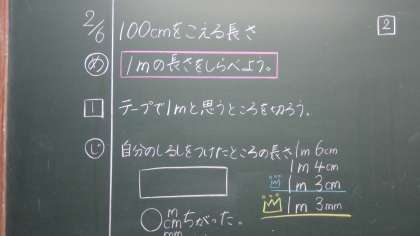 2/6 100cmをこえる長さ
2
め 1mの長さをしらべよう。
1 テープで1mと思うところを切ろう。
じ 自分のしるしをつけたところの長さ 1m6cm
1m4cm
1m3cm
1m3mm
○m
cm
mm ちがった。